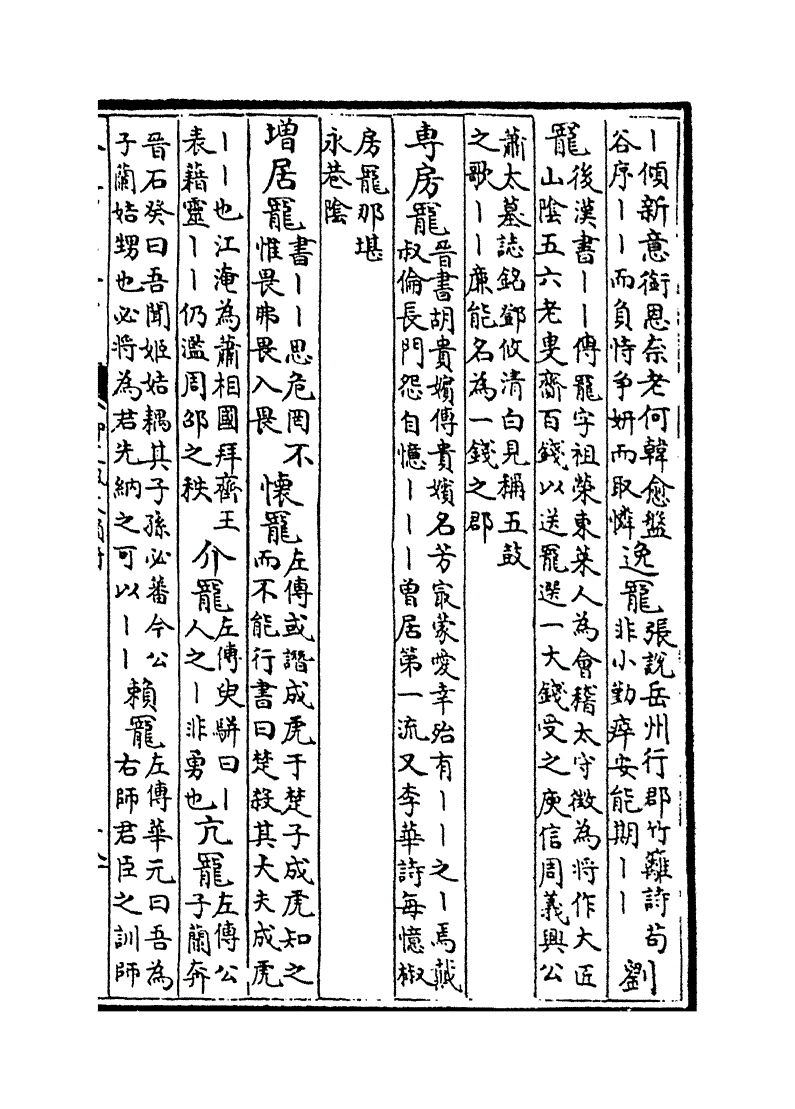 ｜傾新意銜恩奈老何韓愈盤
谷序｜｜而負恃爭妍而取憐
逸寵
張說岳州行郡竹籬詩苟
非小勤瘁安能期｜｜
劉
寵
後漢書｜｜傳寵字祖榮東萊人為會稽太守徵為將作大匠
山陰五六老叟齎百錢以送寵選一大錢受之庾信周義興公
蕭太墓誌銘鄧攸清白見稱五鼓
之歌｜｜廉能名為一錢之郡
專房寵
晉書胡貴嬪傳貴嬪名芳㝡蒙愛幸殆有｜｜之｜焉戴
叔倫長門怨自憶｜｜｜曽居第一流又李華詩每憶椒
房寵那堪
永巷陰
增居寵
書｜｜思危罔不
惟畏弗畏入畏
懷寵
左傳或譖成虎于楚子成虎知之
而不能行書曰楚殺其大夫成虎
｜｜也江淹為蕭相國拜齊王
表藉靈｜｜仍濫周邵之秩
介寵
左傳臾駢曰｜
人之｜非勇也
亢寵
左傳公
子蘭奔
晉石癸曰吾聞姬姞耦其子孫必蕃今公
子蘭姞甥也必將為君先納之可以｜｜
賴寵
左傳華元曰吾為
右師君臣之訓師